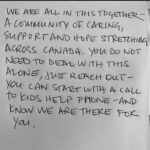 WE ARE ALL IN THIS TOGETHER-
A COMMUNITY OF CARING,
SUPPORT AND HOPE STRETCHING
ACROSS CANADA. YOU DO NOT
NEED TO DEAL WITH THIS
ALONE, JUST REACH OUT-
YOU CAN START WITH A CALL
TO KIDS HELP PHONE-AND
KNOW WE ARE THERE FOR
YOU.